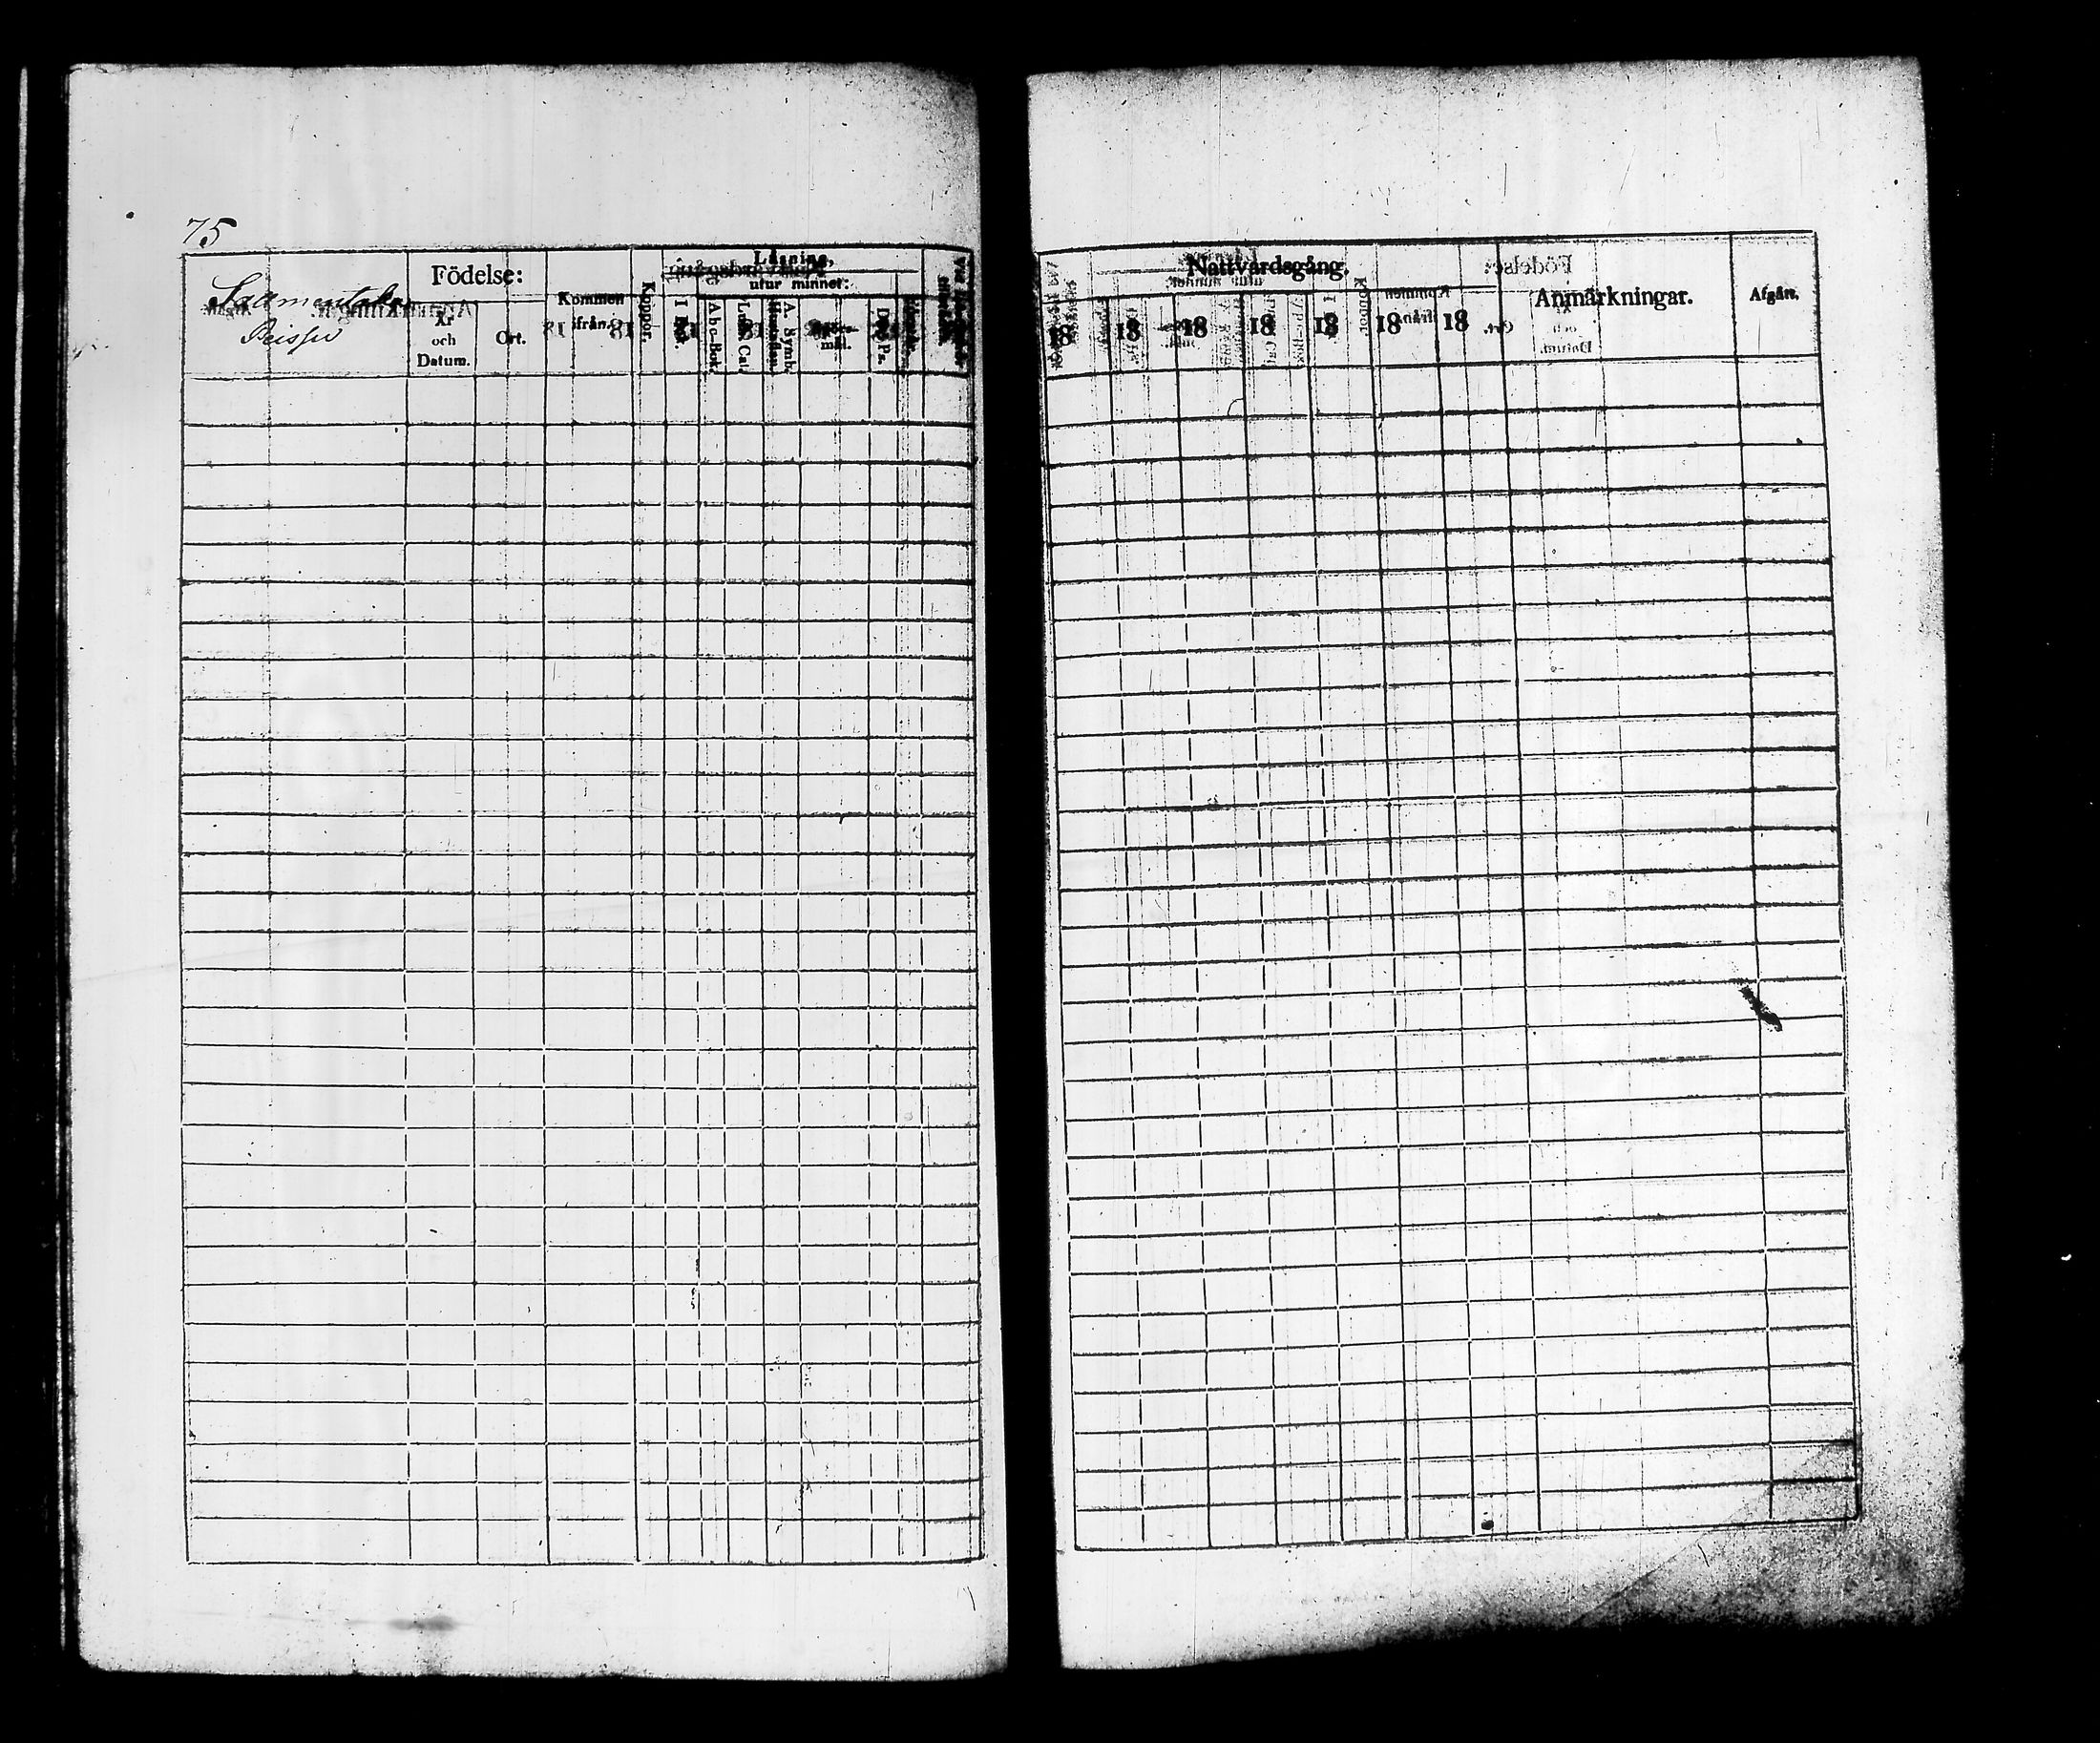 75
Födelse:
År
och
Datum.
Ort.
Kommen
ifrån.
Koppor.
Läsning,
utur minnet:
I Bok.
Abc-Bok.
Luth. Cat.
A. Symb.
D. Ps.
Nattvardsgång.
18 18 18 18 18 18 18
Anmärkningar.
Afgått.